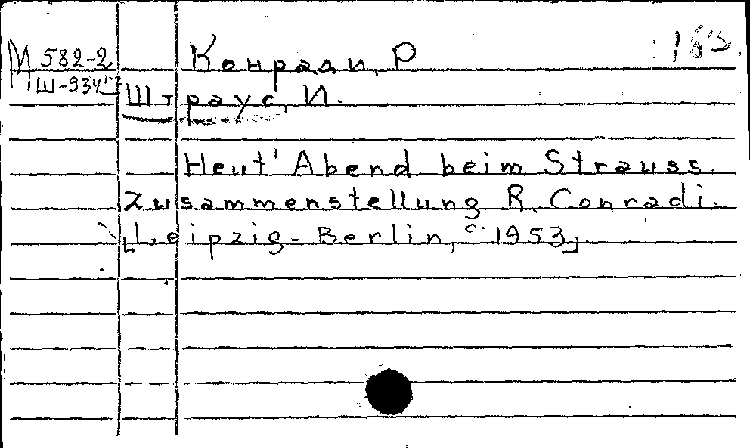 М 582-2 Конради, Р
Ш-934
Штраус, И.
Heut' Abend beim Strauss.
Zusammenstellung R. Conradi.
[Leipzig-Berlin, c 1953]